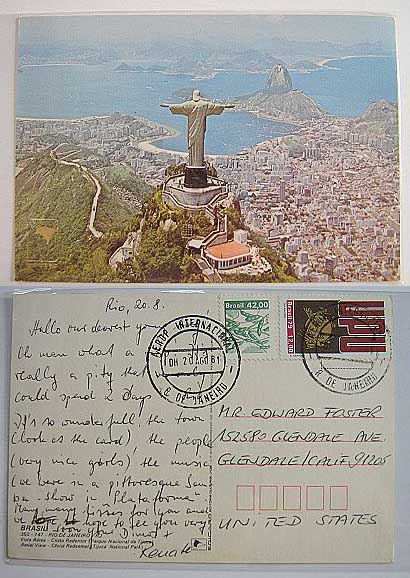 Rio, 20.8.
Hallo our dearest you
Oh man what a
really a pity that
could spend 2 Days
It's so wunderfull, the town
(look at the card), the people
(very nice girls), the music
(we were in a pitturesque Sam
ba-show in "Plataforma"
Many many kisses for you and
we hope to see you very
soon
Renate
BRASIL
350 - 147 - RIO DE JANEIRO
Vista Aérea - Cristo Redentor (Parque Nacional da Tijuca)
Aerial View - Christ Redeemer (Tijuca National Park)
AEROP. INTERNACIONAL
20 AGO 81
R. DE JANEIRO
Brasil 42,00
Brasil 79 12,00
UPU
R. DE JANEIRO
MR EDWARD FOSTER
1525 80 GLENDALE AVE.
GLENDALE/CALIF. 91205
UNITED STATES